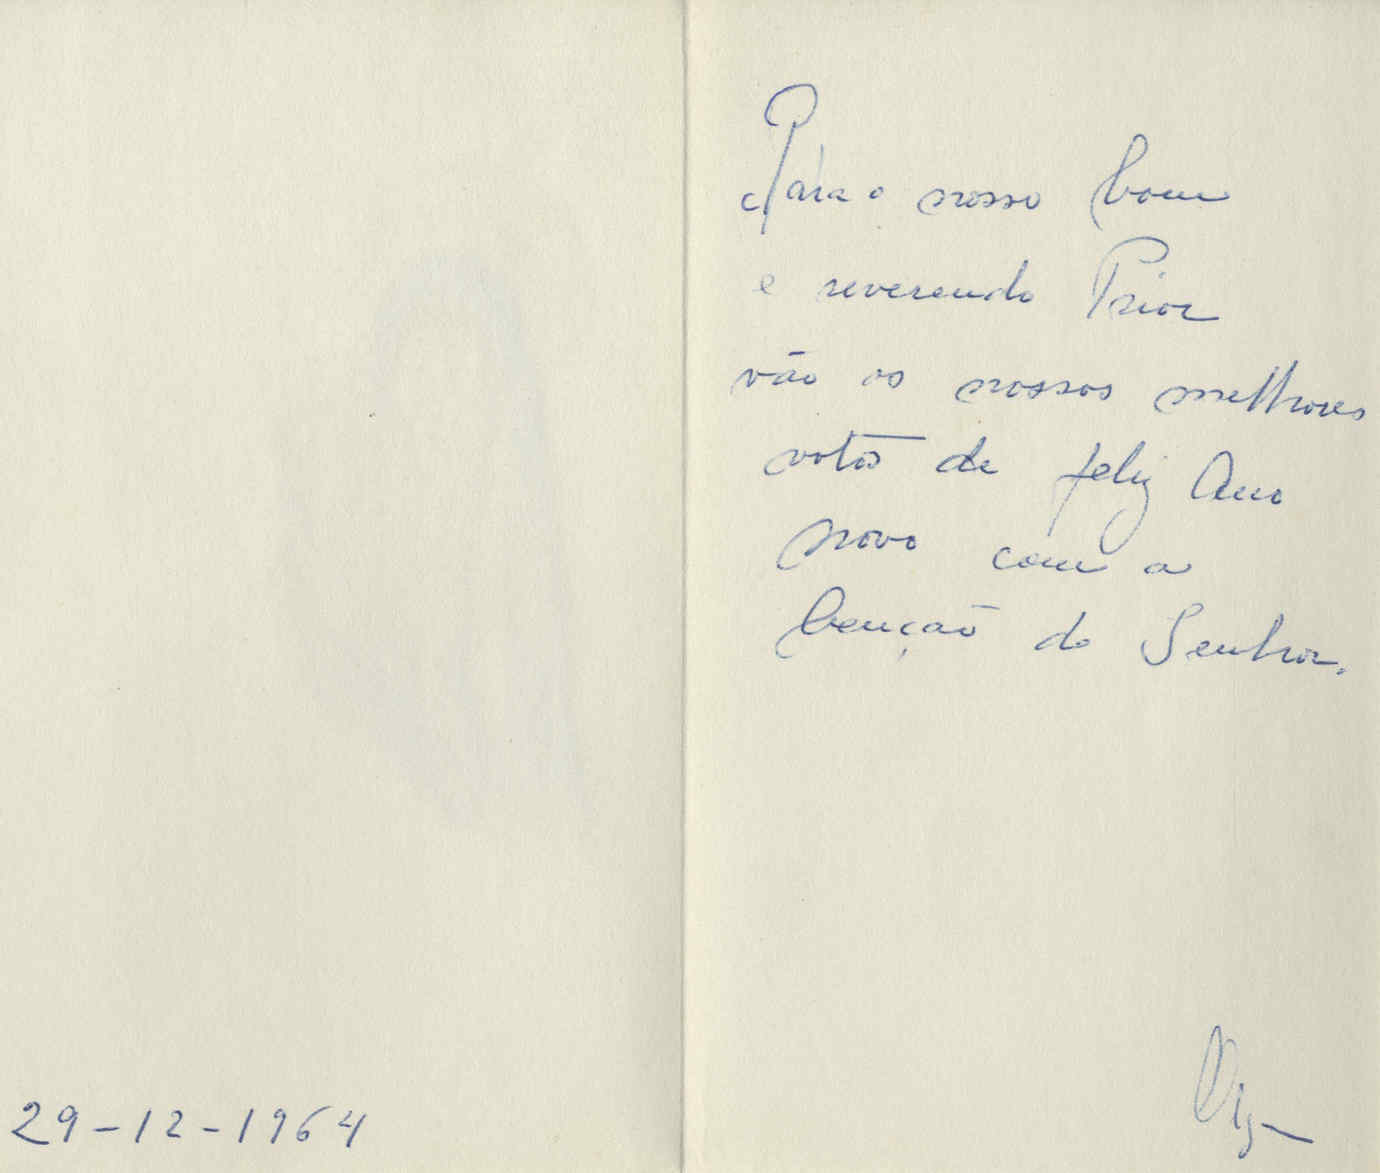 Para o nosso bom
e reverendo Prior
vão os nossos melhores
votos de feliz Ano
novo com a
benção do Senhor.
29-12-1964